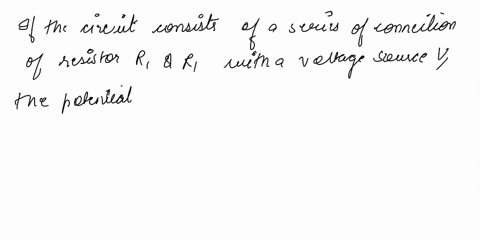 If the circuit consists of a series of connection
of resistor R₁ & R₁ with a voltage source V,
the potential